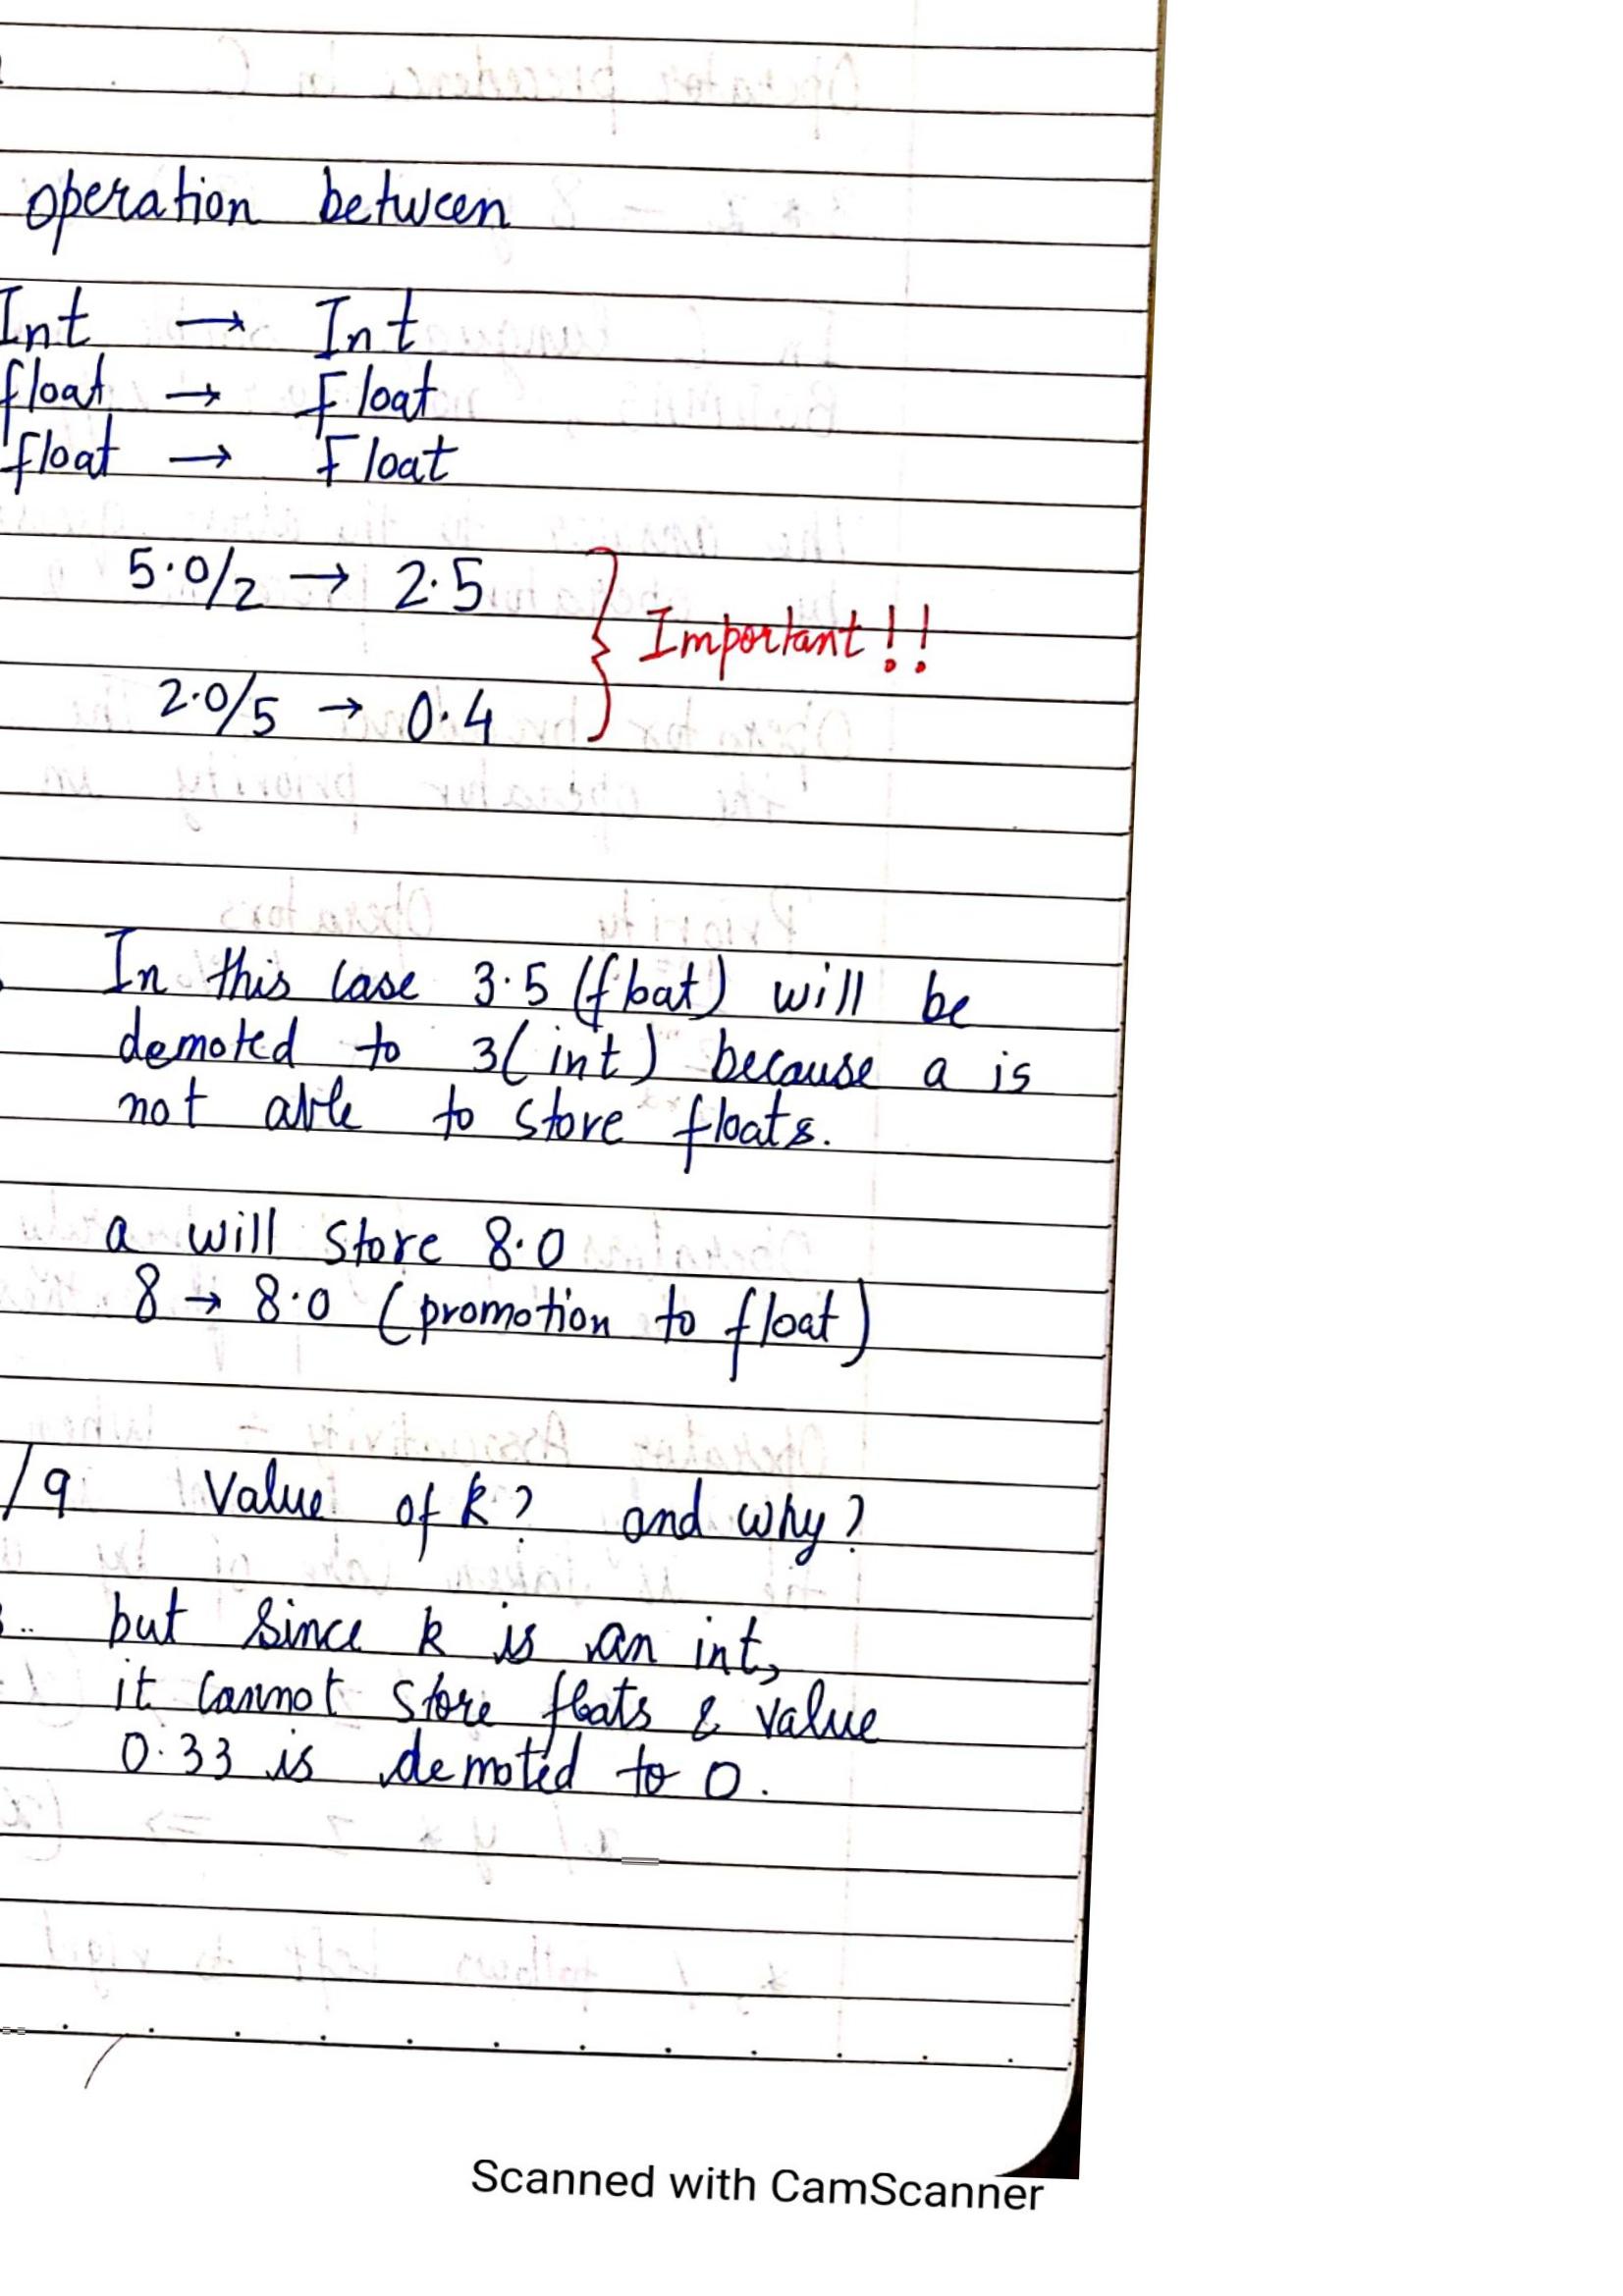 operation between
Int → Int
float → Float
float → Float
5.0/2 → 2.5
Important!!
2.0/5 → 0.4
In this case 3.5 (float) will be
demoted to 3(int) because a is
not able to store floats.
a will store 8.0
8 → 8.0 (promotion to float)
/9 Value of k? and why?
but since k is an int,
it cannot store floats & value
0.33 is demoted to 0.
Scanned with CamScanner